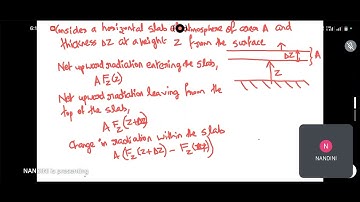 Consider a horizontal slab of atmosphere of area A and
thickness ΔZ at a height Z from the surface
Net upward radiation entering the slab,
A F_z(z)
Net upward radiation leaving from the
top of the slab,
A F_z(z+Δz)
Change in radiation within the slab
A (F_z(z+Δz) - F_z(z))
ΔZ
A
Z
N
NANDINI
is presenting